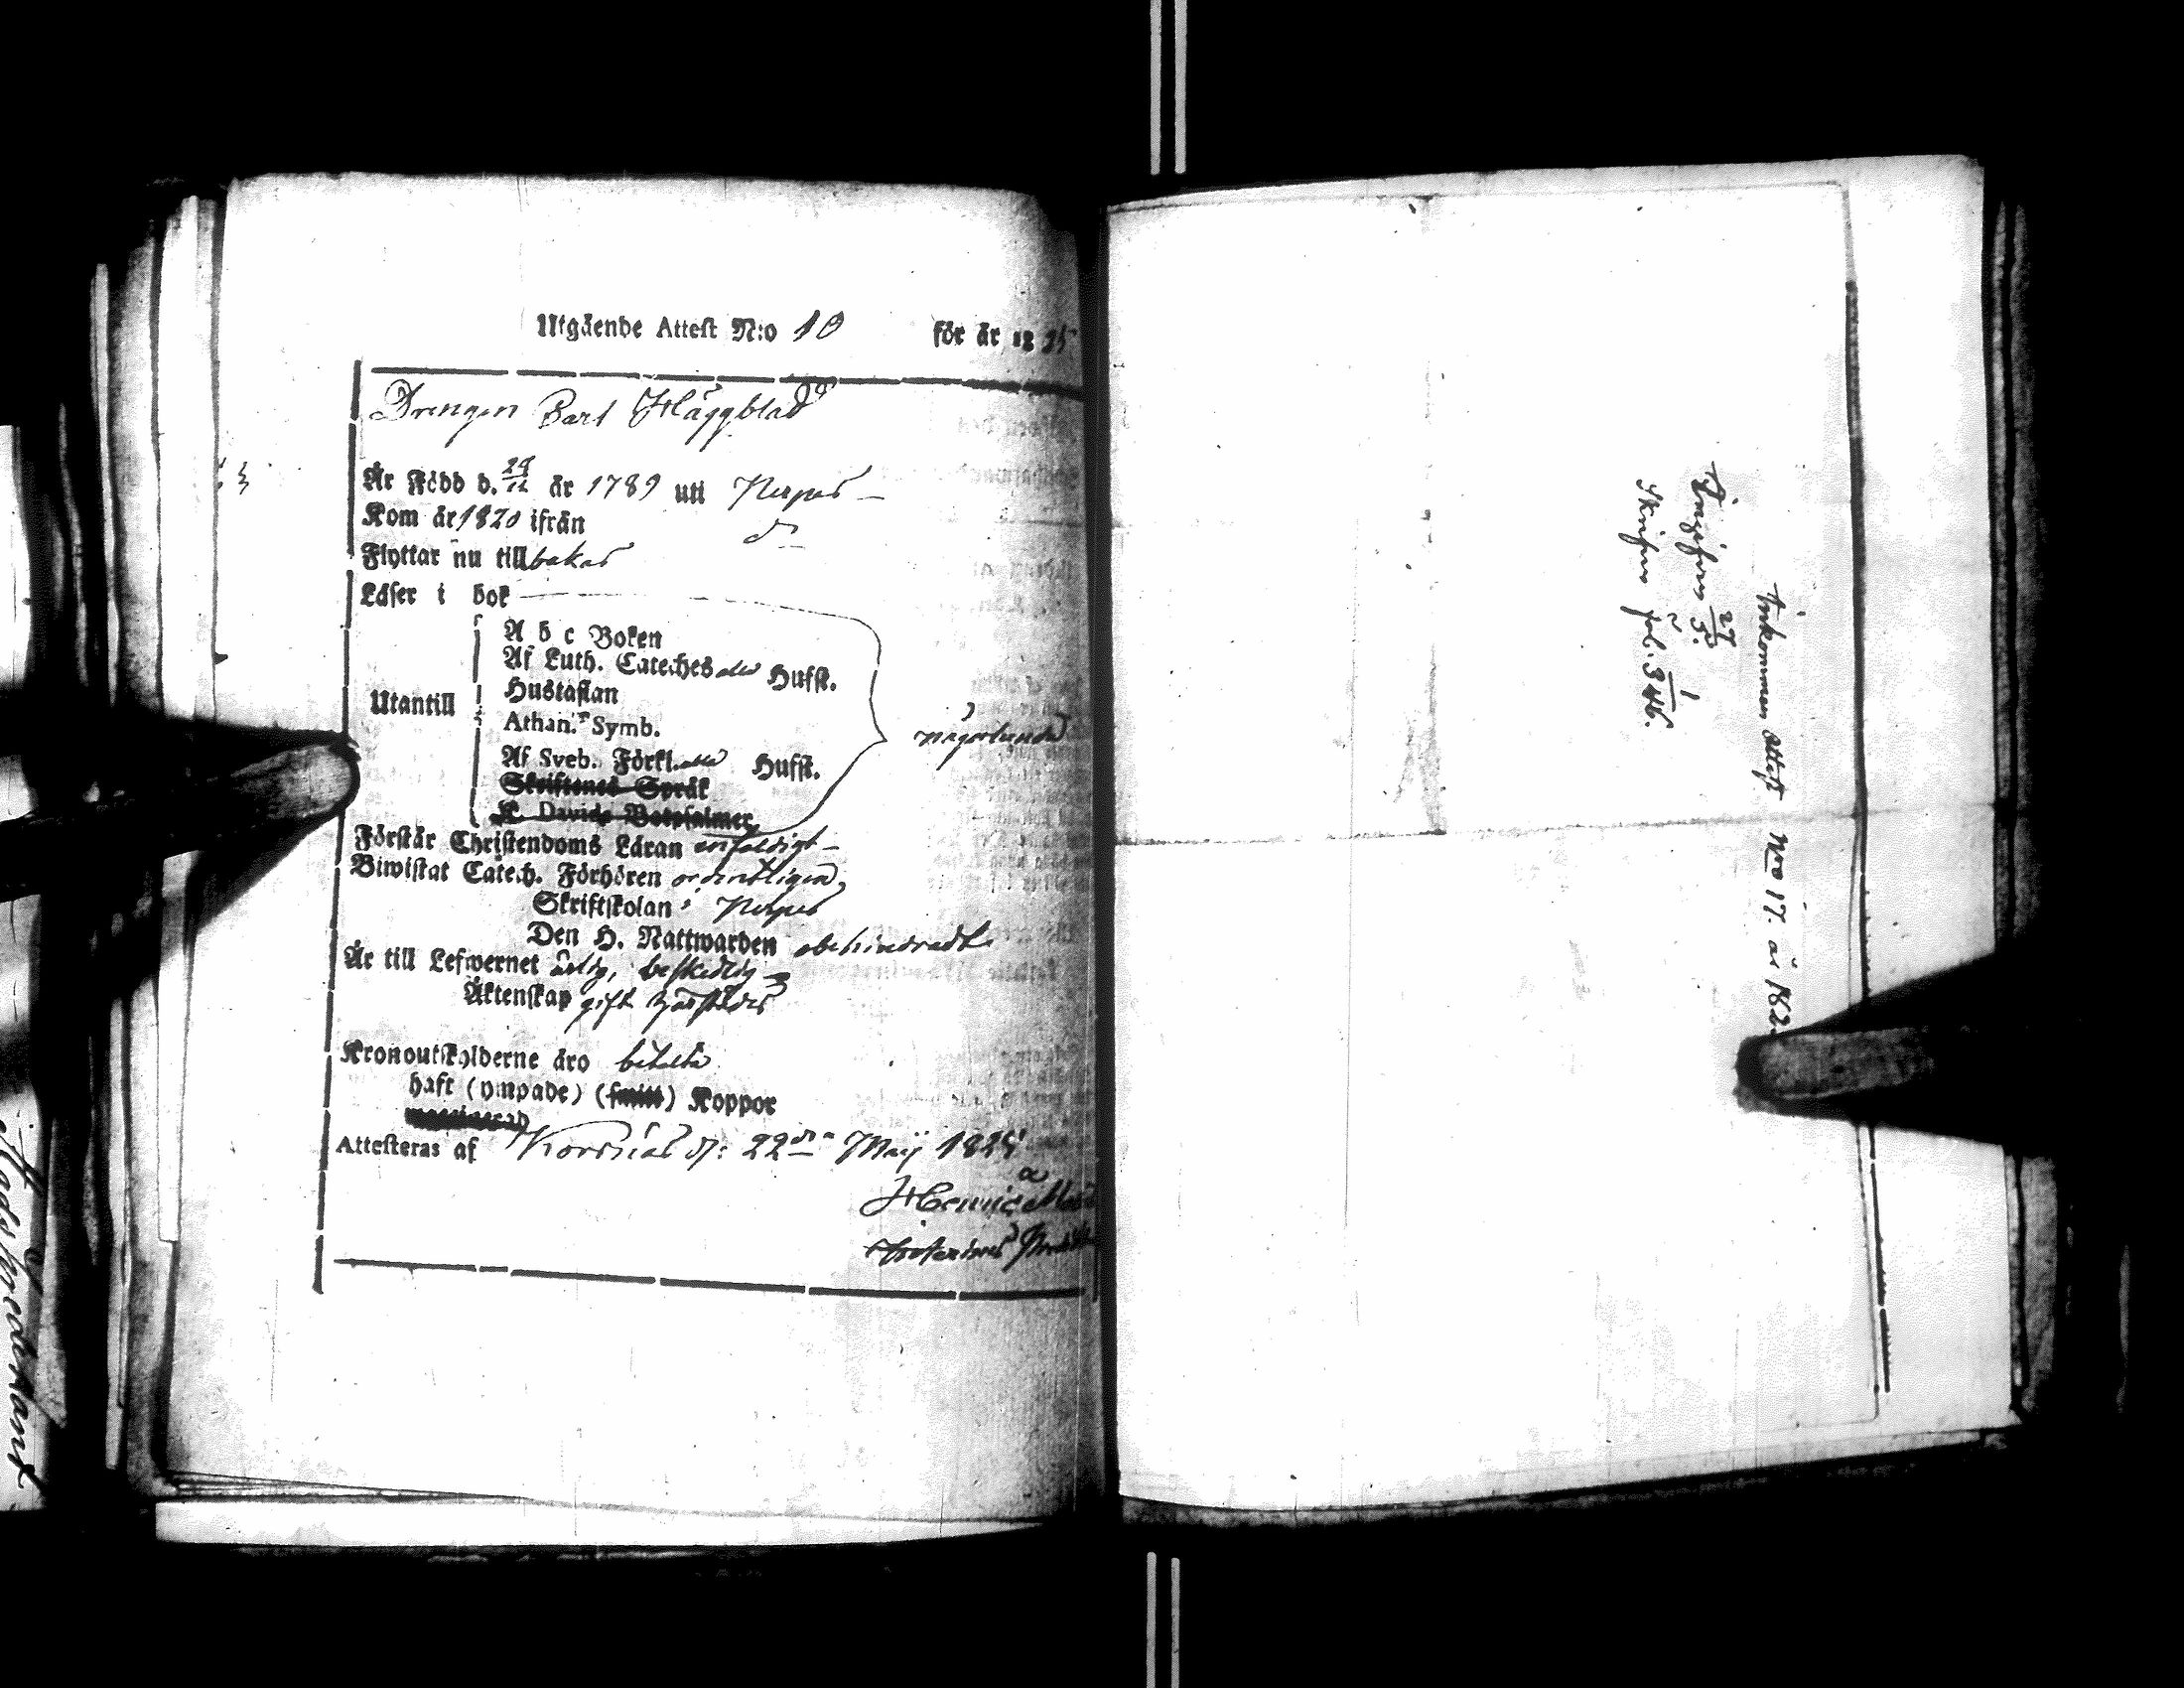 Utgående Attest N:o 10 för år 1825
Drengen Carl Häggblad
Är Född d. 29/12 år 1789 uti Nerpes
Kom år 1820 ifrån d:o
Flyttar nu tillbakas
Läser i bok
A b c Boken
Af Luth. Cateches alla Hufst.
Hustaflan
Utantill
Athan. Symb.
någorlunda
Af Sveb. Förkl. alla Hufst.
Skriftenes Språk
K. Davids Botpsalmer
Förstår Christendoms Läran enfaldigt
Biwistat Catech. Förhören ordentligen,
Skriftskolan i Nerpes
Den H. Nattwarden obehindradt
Är till Lefwernet ärlig, beskedlig
Äktenskap gift
Kronoutskylderne äro betalta
haft (ympade) (smitt) Koppor
Attesteras af Korsnäs d: 22dra Maij 1825
Inkommen attest Nro 17. år 182
27/5.
Skrifven fol. 346.